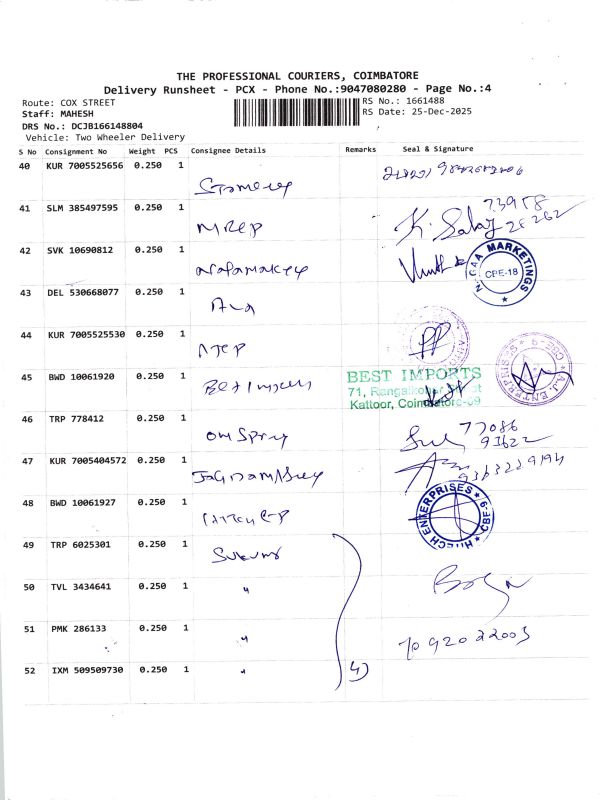 THE PROFESSIONAL COURIERS, COIMBATORE
Delivery Runsheet - PCX - Phone No.:9047080280 - Page No.:4
Route: COX STREET
RS No.: 1661488
Staff: MAHESH
RS Date: 25-Dec-2025
DRS No.: DCJB166148804
Vehicle: Two Wheeler Delivery
S No Consignment No Weight PCS Consignee Details Remarks Seal & Signature
40 KUR 7005525656 0.250 1
41 SLM 385497595 0.250 1
73958
K. Salaj 28262
42 SVK 10690812 0.250 1
NAGAA MARKETINGS CBE-18
43 DEL 530668077 0.250 1
44 KUR 7005525530 0.250 1
45 BWD 10061920 0.250 1
BEST IMPORTS
71, Rangai
Kattoor, Coimbatore-09
A.J. ENTERPRISES CBE-9
46 TRP 778412 0.250 1 Om Spray
77086
91622
47 KUR 7005404572 0.250 1
9363229194
48 BWD 10061927 0.250 1
HITECH ENTERPRISES CBE-9
49 TRP 6025301 0.250 1 Sukumar
50 TVL 3434641 0.250 1 "
51 PMK 286133 0.250 1 "
7092022003
52 IXM 509509730 0.250 1 "
4)